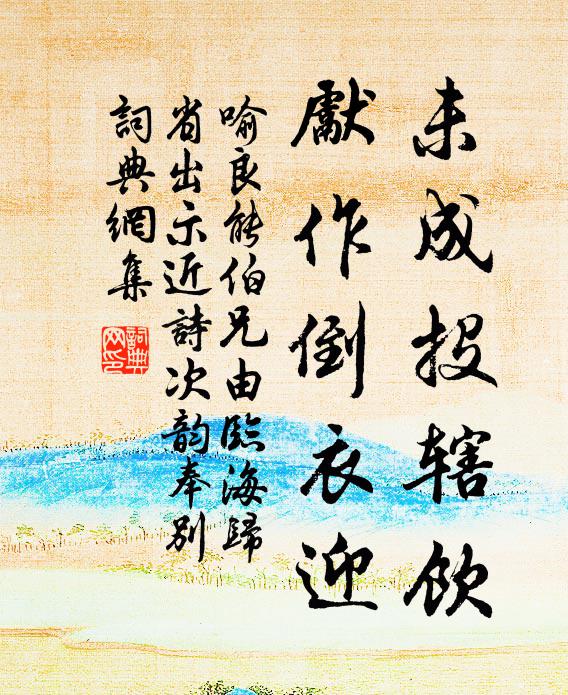 未成投辖飲
獻作倒衣迎
喻良能伯兄由臨海歸
省出示近詩次韵奉别
詞典網集
詞典网印